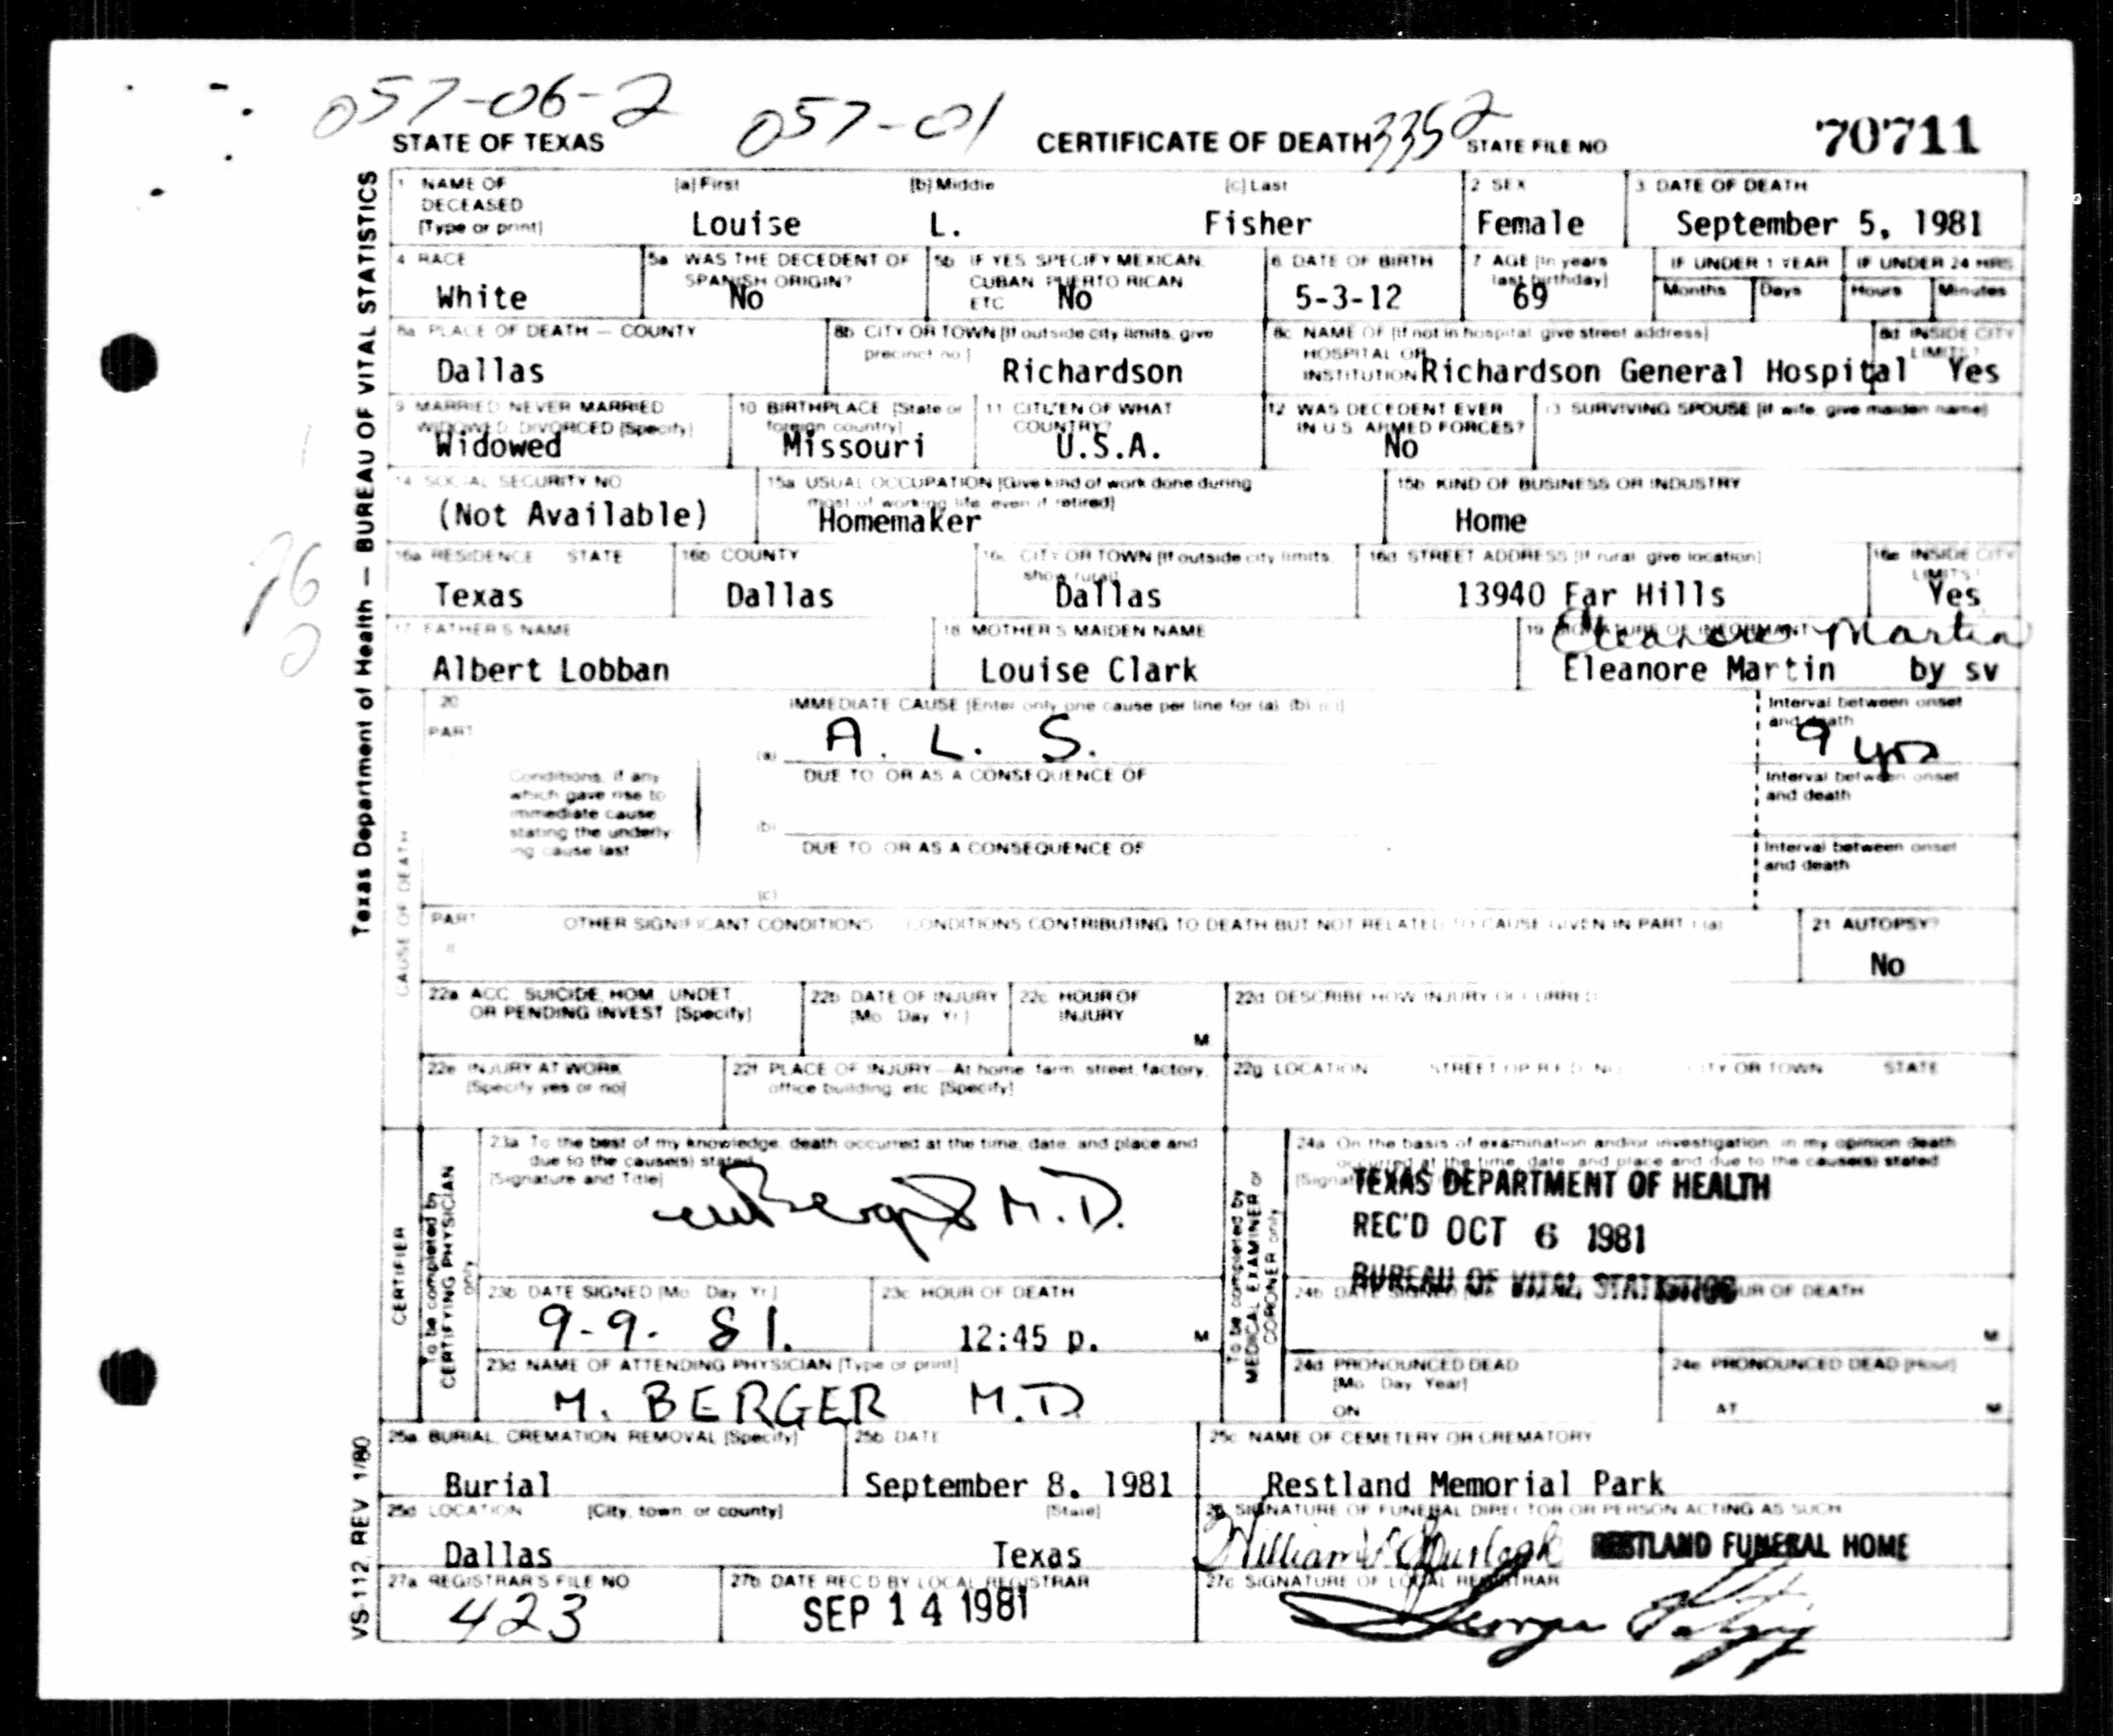 057-06-2 057-01 3352
STATE OF TEXAS CERTIFICATE OF DEATH STATE FILE NO 70711
Texas Department of Health — BUREAU OF VITAL STATISTICS
1 NAME OF DECEASED [Type or print] [a] First [b] Middle [c] Last 2 SEX 3 DATE OF DEATH
Louise L. Fisher Female September 5, 1981
4 RACE 5a WAS THE DECEDENT OF SPANISH ORIGIN? 5b IF YES SPECIFY MEXICAN, CUBAN PUERTO RICAN ETC 6 DATE OF BIRTH 7 AGE [In years last birthday] IF UNDER 1 YEAR IF UNDER 24 HRS
Months Days Hours Minutes
White No No 5-3-12 69
8a PLACE OF DEATH — COUNTY 8b CITY OR TOWN [If outside city limits, give precinct no.] 8c NAME OF [If not in hospital give street address] HOSPITAL OR INSTITUTION 8d INSIDE CITY LIMITS?
Dallas Richardson Richardson General Hospital Yes
9 MARRIED NEVER MARRIED WIDOWED DIVORCED [Specify] 10 BIRTHPLACE [State or foreign country] 11 CITIZEN OF WHAT COUNTRY? 12 WAS DECEDENT EVER IN U.S. ARMED FORCES? 13 SURVIVING SPOUSE [If wife, give maiden name]
Widowed Missouri U.S.A. No
14 SOCIAL SECURITY NO 15a USUAL OCCUPATION [Give kind of work done during most of working life even if retired] 15b KIND OF BUSINESS OR INDUSTRY
(Not Available) Homemaker Home
16a RESIDENCE STATE 16b COUNTY 16c CITY OR TOWN [If outside city limits, show rural] 16d STREET ADDRESS [If rural give location] 16e INSIDE CITY LIMITS?
Texas Dallas Dallas 13940 Far Hills Yes
17 FATHER'S NAME 18 MOTHER'S MAIDEN NAME 19 SIGNATURE OF INFORMANT
Eleanore Martin
Albert Lobban Louise Clark Eleanore Martin by sv
CAUSE OF DEATH
20 IMMEDIATE CAUSE [Enter only one cause per line for (a), (b), (c)] Interval between onset and death
PART
(a) A. L. S. 9 yrs
DUE TO OR AS A CONSEQUENCE OF Interval between onset and death
Conditions, if any
which gave rise to
immediate cause
stating the underly-
ing cause last
(b)
DUE TO OR AS A CONSEQUENCE OF Interval between onset and death
(c)
PART II OTHER SIGNIFICANT CONDITIONS CONDITIONS CONTRIBUTING TO DEATH BUT NOT RELATED TO CAUSE GIVEN IN PART I (a) 21 AUTOPSY?
No
22a ACC, SUICIDE, HOM, UNDET, OR PENDING INVEST [Specify] 22b DATE OF INJURY [Mo. Day Yr.] 22c HOUR OF INJURY M 22d DESCRIBE HOW INJURY OCCURRED
22e INJURY AT WORK [Specify yes or no] 22f PLACE OF INJURY—At home farm street, factory, office building, etc [Specify] 22g LOCATION STREET OR R.F.D. NO. CITY OR TOWN STATE
CERTIFIER
To be completed by CERTIFYING PHYSICIAN only
23a To the best of my knowledge, death occurred at the time, date, and place and due to the cause(s) stated
[Signature and Title]
Berger M.D.
23b DATE SIGNED [Mo Day Yr.] 23c HOUR OF DEATH
9-9. 81. 12:45 p. M
23d NAME OF ATTENDING PHYSICIAN [Type or print]
M. BERGER M.D.
To be completed by MEDICAL EXAMINER or CORONER only
24a On the basis of examination and/or investigation, in my opinion death occurred at the time, date, and place and due to the cause(s) stated
TEXAS DEPARTMENT OF HEALTH
REC'D OCT 6 1981
BUREAU OF VITAL STATISTICS
24b DATE SIGNED HOUR OF DEATH M
24d PRONOUNCED DEAD [Mo. Day Year] ON 24e PRONOUNCED DEAD [Hour] AT M
25a BURIAL, CREMATION, REMOVAL [Specify] 25b DATE 25c NAME OF CEMETERY OR CREMATORY
Burial September 8, 1981 Restland Memorial Park
25d LOCATION [City, town, or county] [State] 26 SIGNATURE OF FUNERAL DIRECTOR OR PERSON ACTING AS SUCH
Dallas Texas William RESTLAND FUNERAL HOME
27a REGISTRAR'S FILE NO 27b DATE REC'D BY LOCAL REGISTRAR 27c SIGNATURE OF LOCAL REGISTRAR
423 SEP 14 1981 George
VS-112, REV 1/80